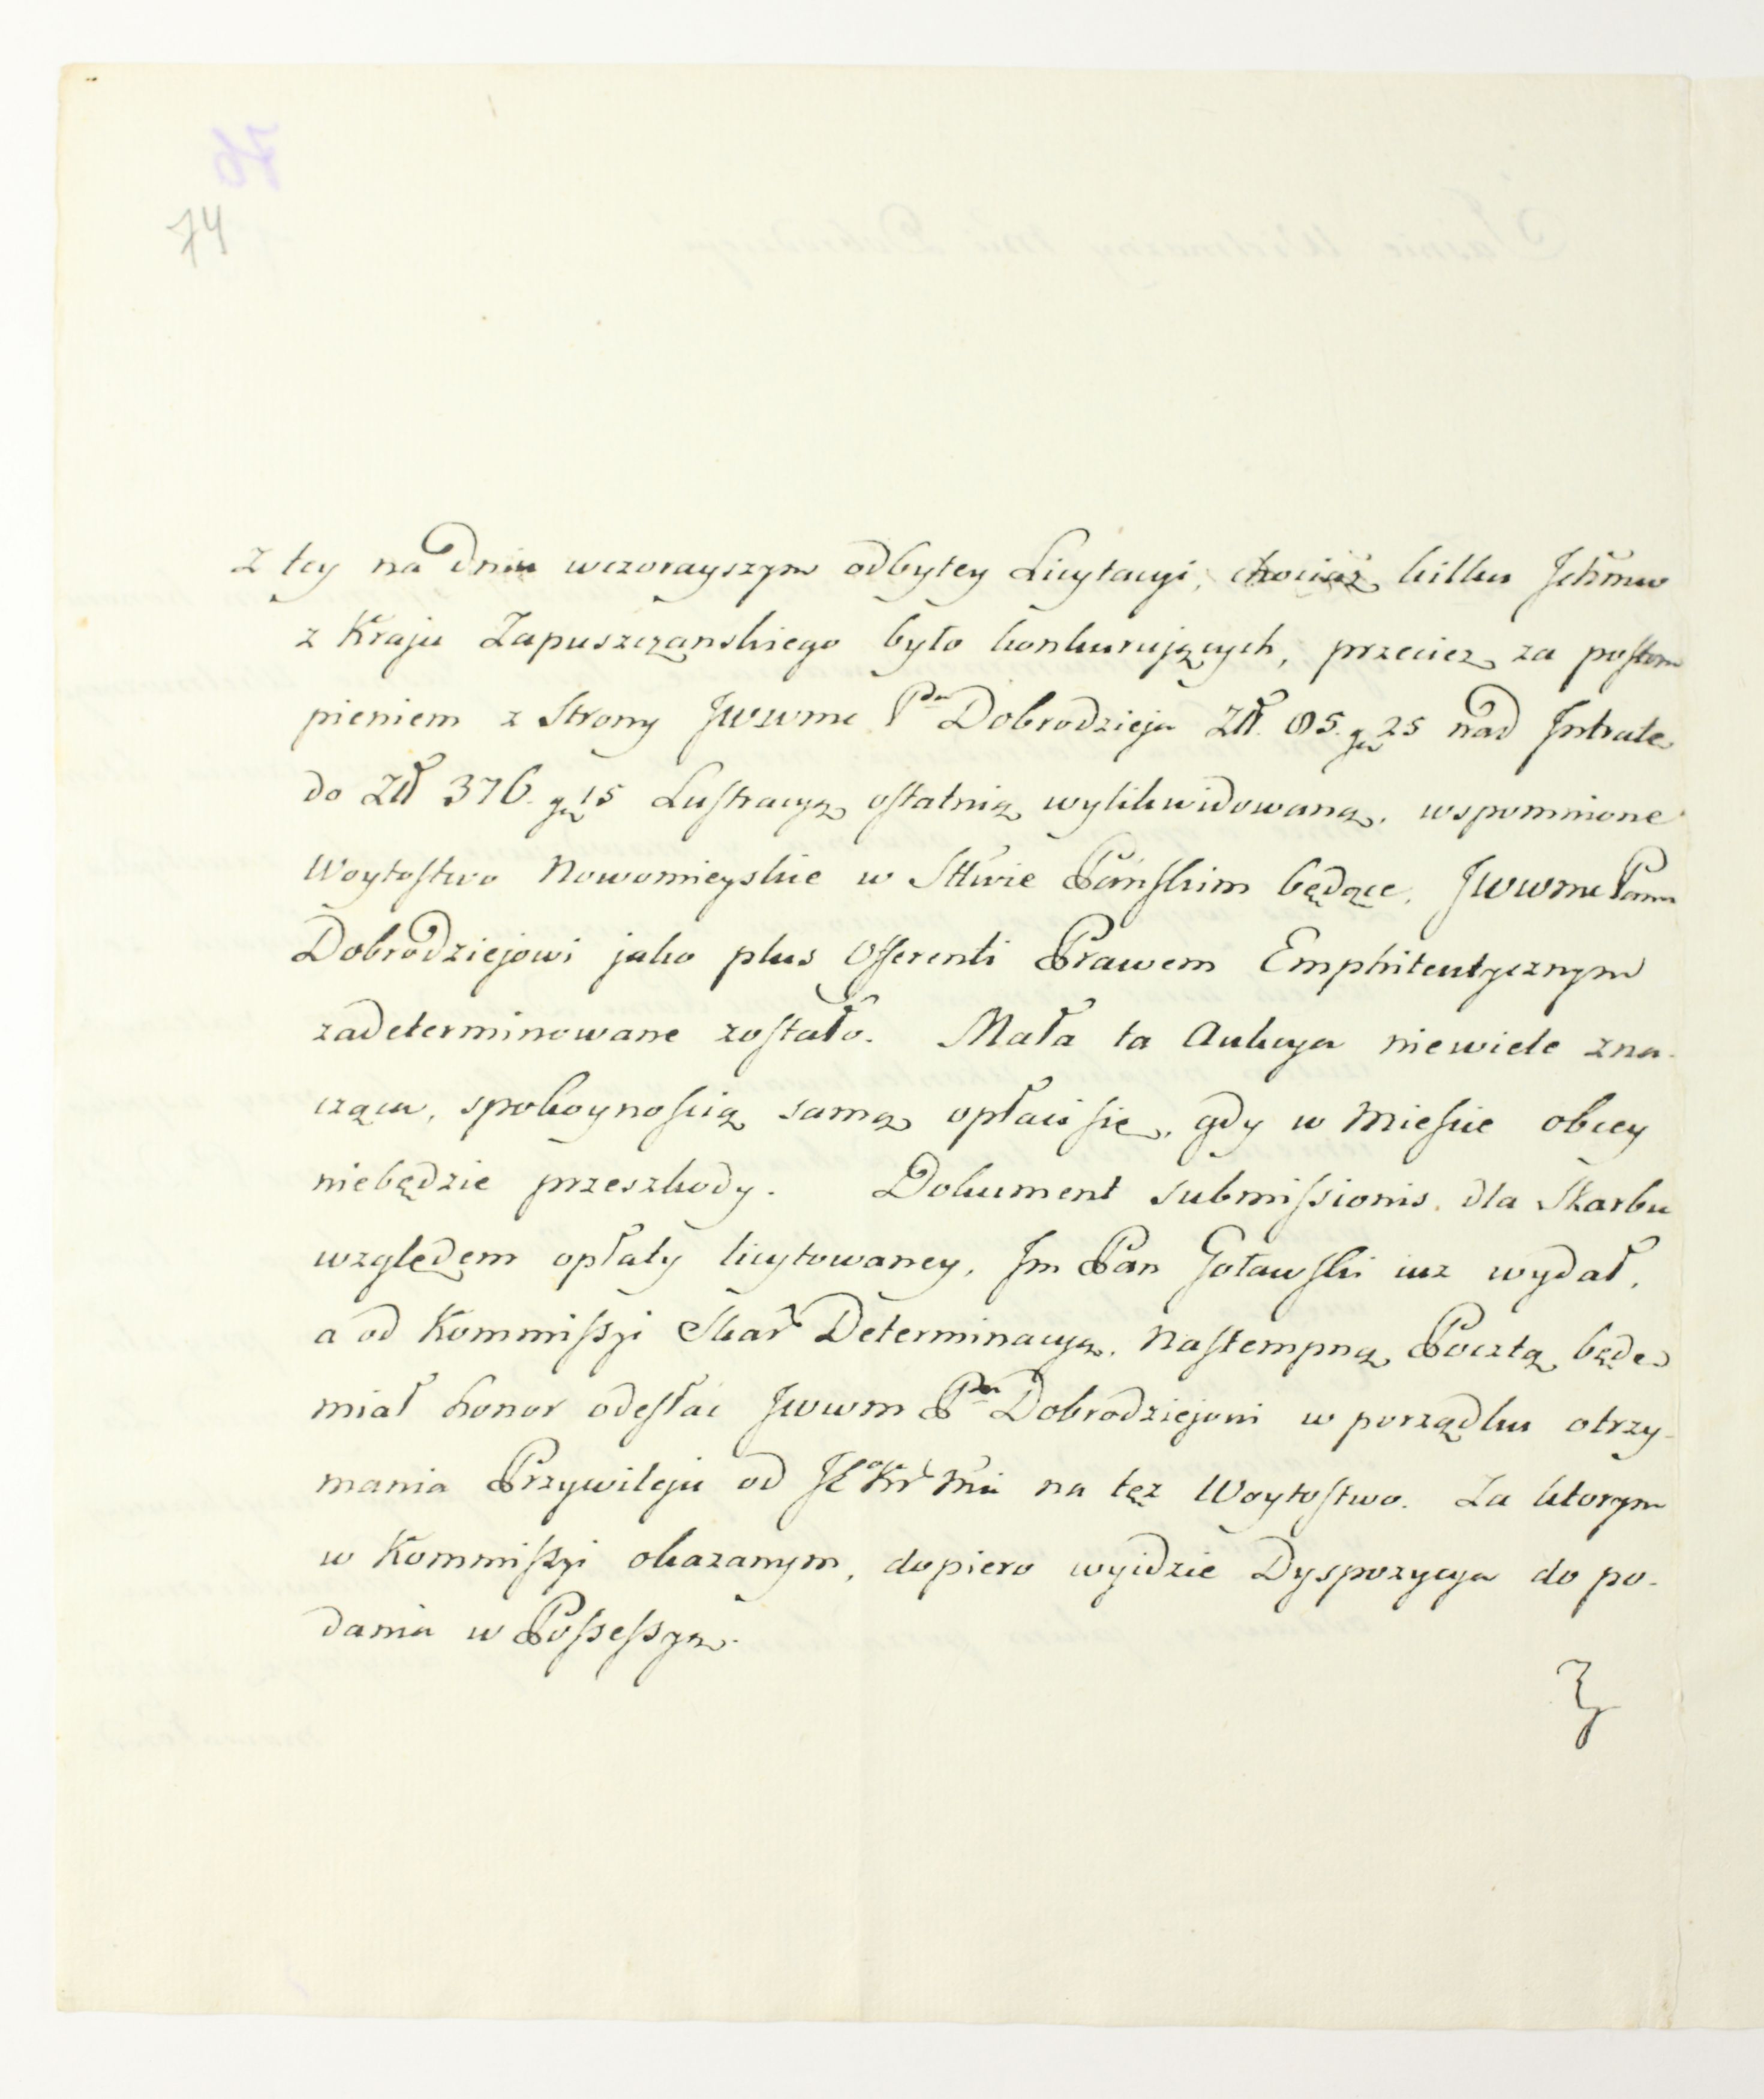 74
z tey na dniu wczorayszym odbytey Licytacyi, chociaż kilku Jchmw
z Kraju Zapuszczanskiego było konkurujących, przecież za postom
pieniem z Strony JWWmc Pna Dobrodzieja Zł. 85. gr 25 nad Intratę
do Zł 376. gr 15 Lustracyą ostatnią wylikwidowaną, wspomnione
Woytostwo Nowomieyskie w Sttwie Pańskim będące, JWWmc Panu
Dobrodziejowi jako plus Offerenti Prawem Emphiteutycznym
zadeterminowane zostało. Mała ta Aukcya niewiele zna-
cząca, spokoynoscią samą opłaci się, gdy w Miescie obcey
niebędzie przeszkody. Dokument submissionis dla Skarbu
względem opłaty licytowaney, Jm Pan Gotawski iuz wydał,
a od Kommissyi Skar Determinacyą, Nastempną Pocztą będę
miał honor odesłać JWWm Pnu Dobrodziejowi w porządku otrzy-
mania Przywileju od JKr Mci na tęz Woytostwo. Za ktorym
w Kommissyi okazanym, dopiero wyidzie Dyspozycya do po-
dania w Possessyą.